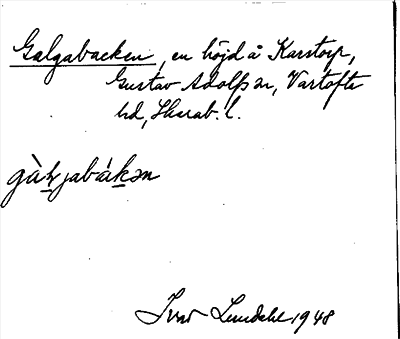 Galgabacken, en höjd å Karstorp,
Gustav Adolfs sn, Vartofta
hd, Skarab. l.
gàɫjabákən
Ivar Lundahl 1948